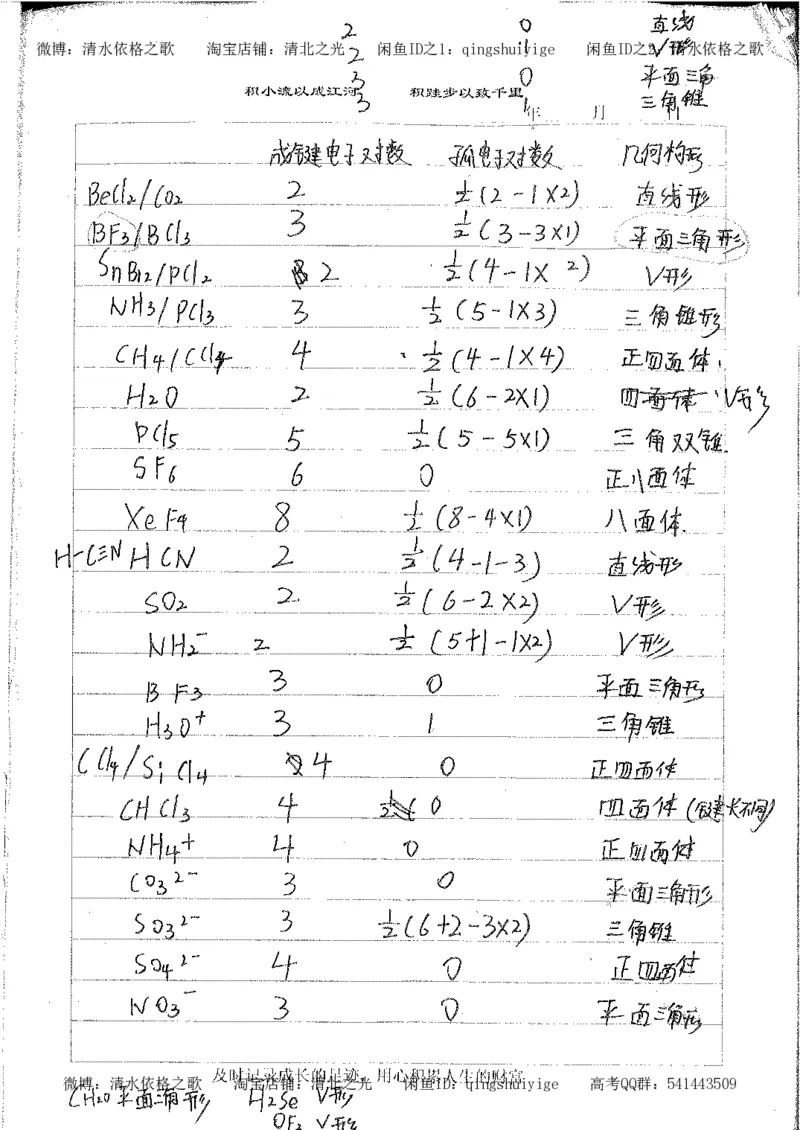 2 0 直线
微博：清水依格之歌 淘宝店铺：清北之光 闲鱼ID之1：qingshuiyige 闲鱼ID之2：清水依格之歌
2 1 V形
3 0 平面三角
积小流以成江河 积跬步以致千里
3 1 三角锥
年 月
成键电子对数 孤电子对数 几何构形
BeCl2/CO2 2 ½(2-1×2) 直线形
BF3/BCl3 3 ½(3-3×1) 平面三角形
SnBr2/PCl2 2 ½(4-1×2) V形
NH3/PCl3 3 ½(5-1×3) 三角锥形
CH4/CCl4 4 ½(4-1×4) 正四面体
H2O 2 ½(6-2×1) 四面体 V形
PCl5 5 ½(5-5×1) 三角双锥
SF6 6 0 正八面体
XeF4 8 ½(8-4×1) 八面体
H-C≡N HCN 2 ½(4-1-3) 直线形
SO2 2 ½(6-2×2) V形
NH2⁻ 2 ½(5+1-1×2) V形
BF3 3 0 平面三角形
H3O⁺ 3 1 三角锥
CCl4/SiCl4 4 0 正四面体
CHCl3 4 0 四面体(键长不同)
NH4⁺ 4 0 正四面体
CO3²⁻ 3 0 平面三角形
SO3²⁻ 3 ½(6+2-3×2) 三角锥
SO4²⁻ 4 0 正四面体
NO3⁻ 3 0 平面三角形
及时记录成长的足迹，用心积累人生的财富
微博：清水依格之歌 淘宝店铺：清北之光 闲鱼ID：qingshuiyige 高考QQ群：541443509
CH2O 平面三角形 H2Se V形
OF2 V形